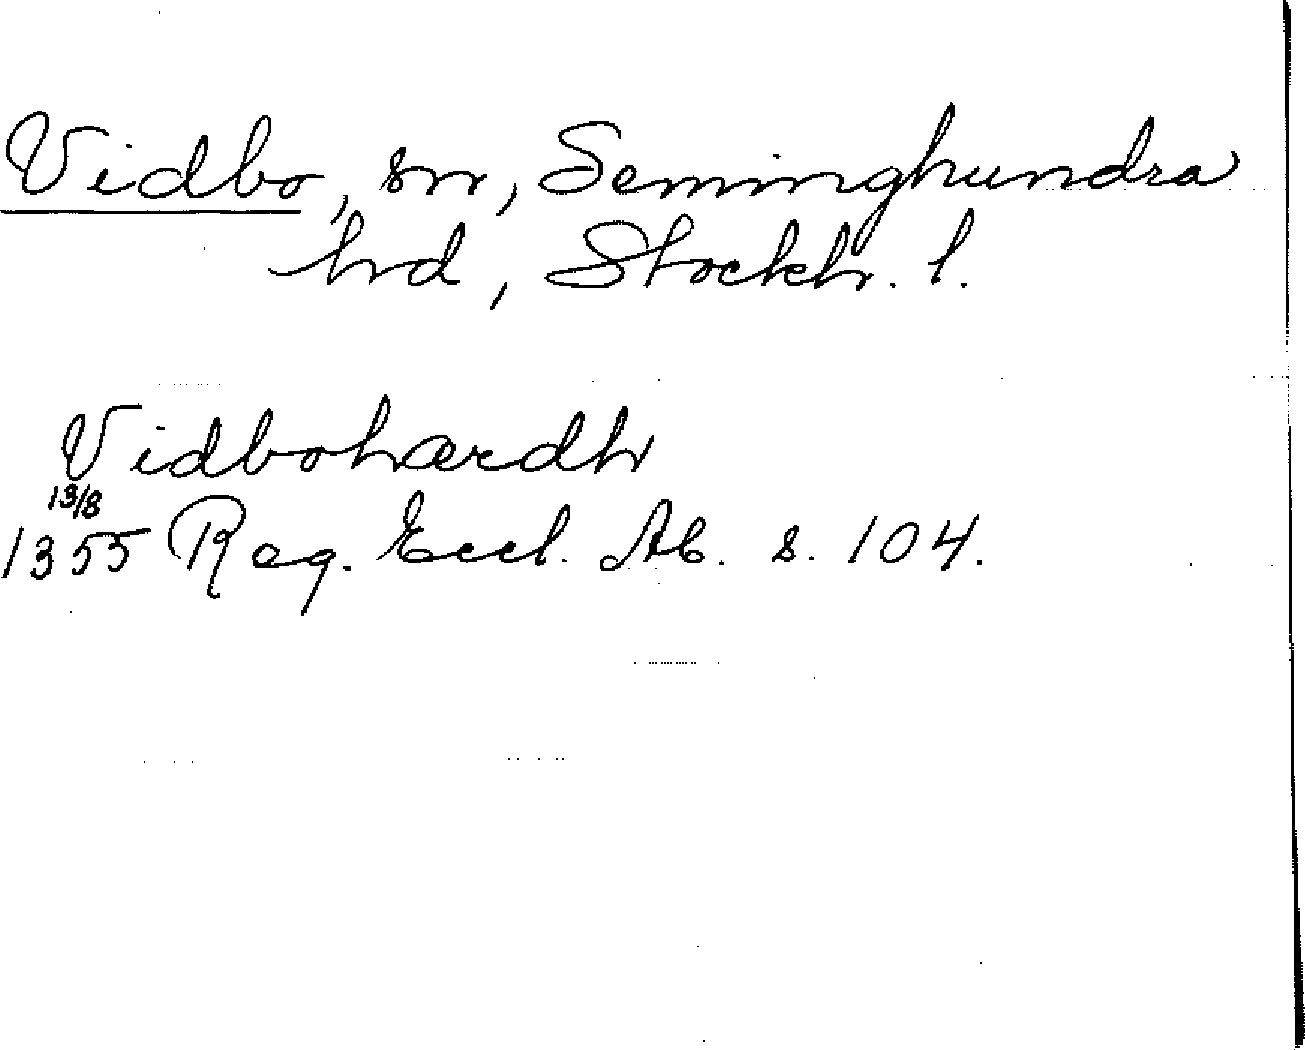 Vidbo, sn, Seminghundra
hrd, Stockh. l.
Vidbohærdh
13/8
1355 Reg. Eccl. Ab. s. 104.